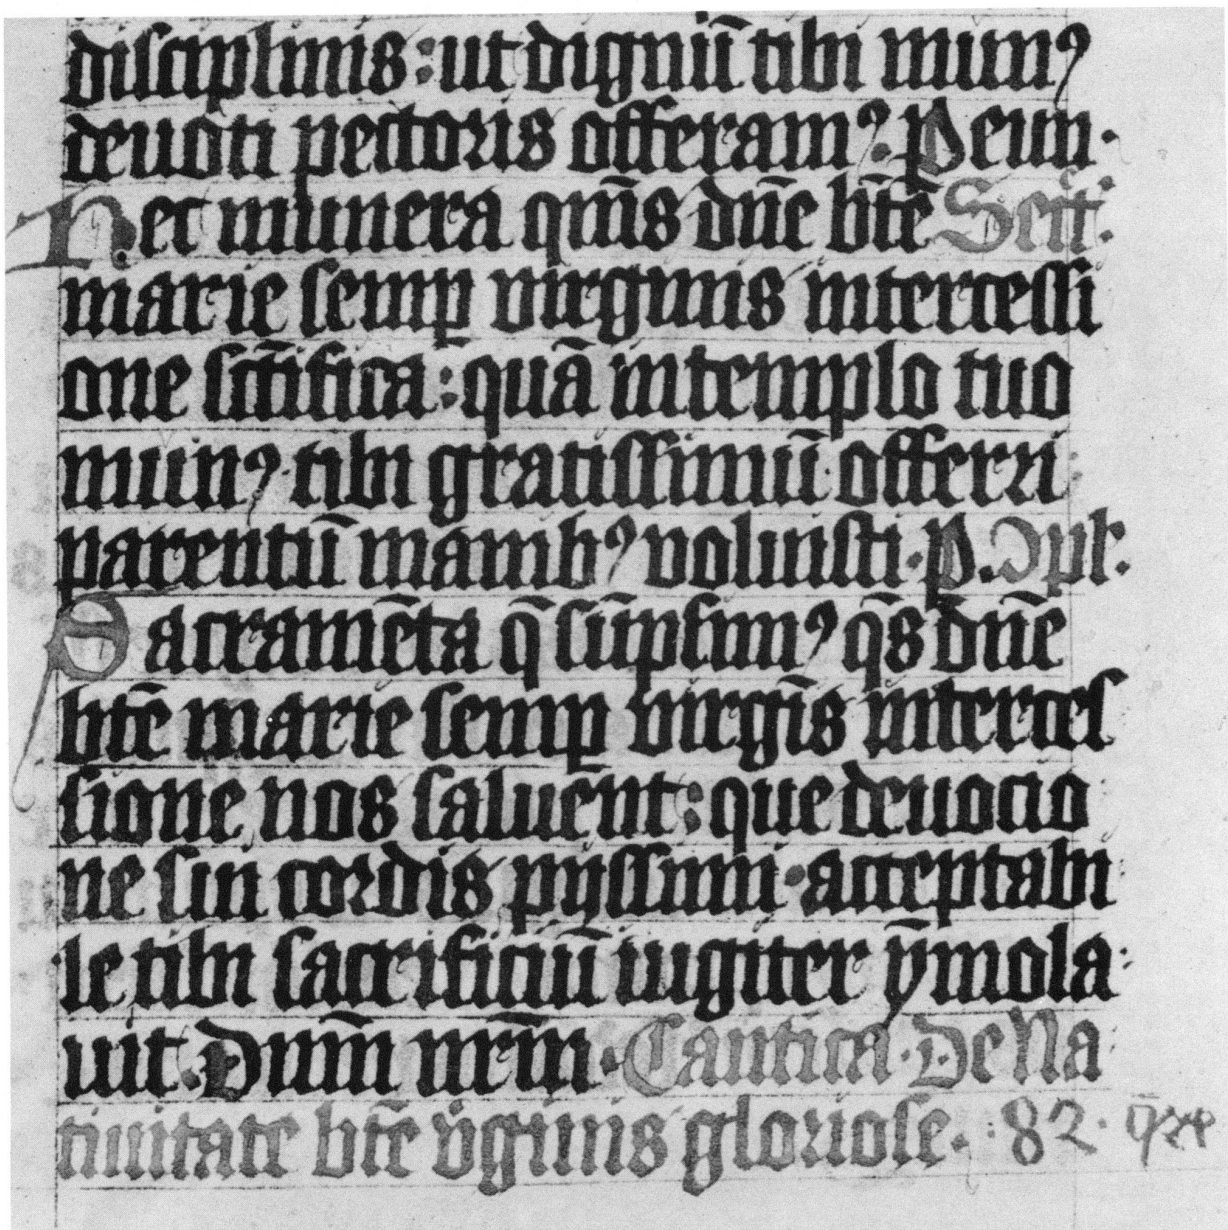 disciplinis: ut dignũ tibi munꝰ
deuoti pectoris offeramꝰ. P eun.
Hec munera qum̃s dñe bt̃e Secrt̃.
marie semꝑ virginis intercessi
one sc̃ifica: quã in templo tuo
munꝰ tibi gratissimũ offerri
parentũ manibꝰ voluisti. P. Ↄpl.
Sacramẽta q̃ sũpsimꝰ q̃s dñe
bt̃e marie semꝑ virgĩs interces
sione nos saluent: que deuocio
ne sui cordis pijssimi acceptabi
le tibi sacrificiũ iugiter ymola
uit. Dnm̃ nrm̃. Cantica. De Na
tiuitate bt̃e v̾ginis gloriose. 82.